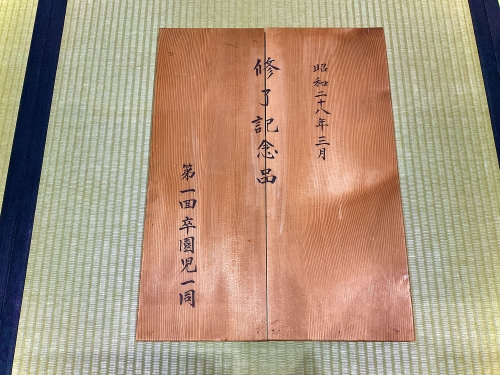 昭和二十八年三月
修了記念品
第一回卒園児一同